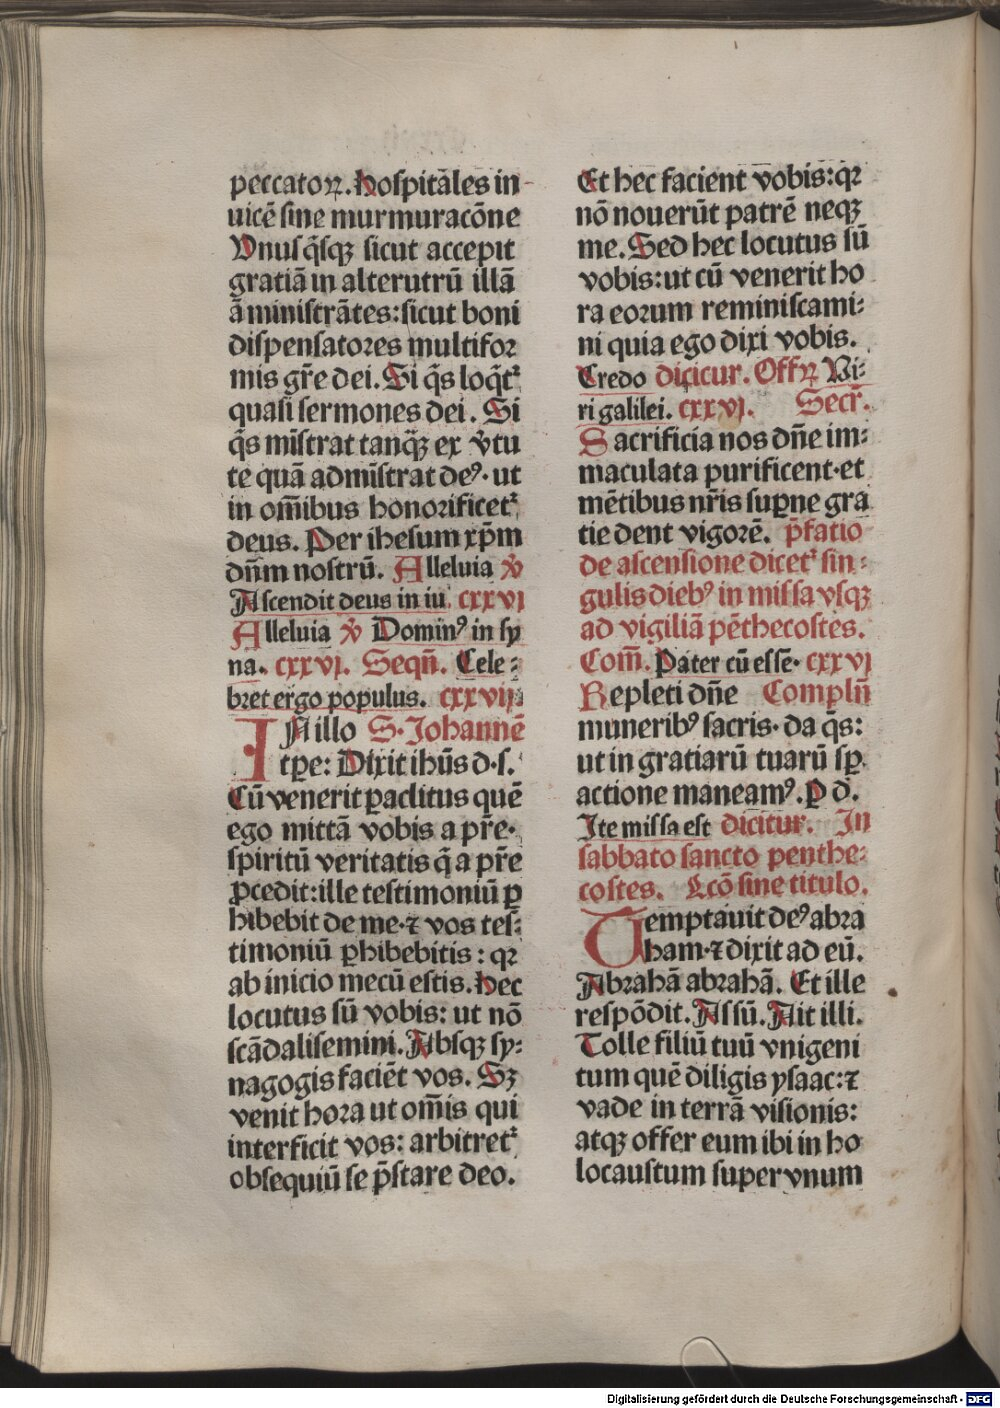 peccatoꝝ. Hoſpitāles in
uicē ſine murmuracōne
Vnuſq̄ſqꝫ ſicut accepit
gratiā in alterutrū illā
āminiſtrātes: ſicut boni
diſpenſatores multifor
mis gr̄e dei. Si q̄s loq̄tᷣ
quaſi ſermones dei. Si
q̄s mīſtrat tanq̄ꝫ ex v̄tu
te quā admīſtrat deꝰ· ut
in om̄ibus honorificetᷣ
deus. Per iheſum xp̄m
dn̄m noſtrū. Alleluia v̄
Aſcendit deus in iu. cxxvi
Alleluia v̄ Dominꝰ in ſy
na. cxxvi. Seqn̄. Cele⸗
bret ergo populus. cxxvij.
IN illo S. Johannē
tꝑe: Dixit ihūs d. ſ.
Cū venerit ꝑaclitus quē
ego mittā vobis a pr̄e.
ſpiritū veritatis q̄ a pr̄e
ꝓcedit: ille teſtimoniū ꝑ
hibebit de me·⁊ vos teſ⸗
timoniū ꝑhibebitis: qꝛ
ab inicio mecū eſtis. Hec
locutus ſū vobis: ut nō
ſcādaliſemini. Abſqꝫ ſy⸗
nagogis faciēt vos. Sꝫ
venit hora ut om̄is qui
interficit vos: arbitretᷣ
obſequiū ſe p̄ſtare deo.
Et hec facient vobis: qꝛ
nō nouerūt patrē neqꝫ
me. Sed hec locutus ſū
vobis: ut cū venerit ho
ra eorum reminiſcami⸗
ni quia ego dixi vobis.
Credo dicicur. Offꝝ Vi⸗
ri galilei. cxxvj. Secr̄.
Sacrificia nos dn̄e im⸗
maculata purificent·et
mētibus nr̄is ſuꝑne gra
tie dent vigorē. p̄fatio
de aſcenſione dicetᷣ ſin⸗
gulis diebꝰ in miſſa vſqꝫ
ad vigiliā pēthecoſtes.
Com̄. Pater cū eſſē. cxxvj
Repleti dn̄e Compln̄
muneribꝰ ſacris· da q̄s:
ut in gratiarū tuarū ſꝑ
actione maneamꝰ. P̱ d̄.
Ite miſſa eſt dicitur. In
ſabbato ſancto penthe⸗
coſtes. Lcō ſine titulo.
Temptauit deꝰ abra
ham·⁊ dixit ad eū.
Abrahā abrahā. Et ille
reſpōdit. Aſſū. Ait illi.
Tolle filiū tuū vnigeni
tum quē diligis yſaac:⁊
vade in terrā viſionis:
atqꝫ offer eum ibi in ho
locauſtum ſuper vnum
Digitalisierung gefördert durch die Deutsche Forschungsgemeinschaft - DFG